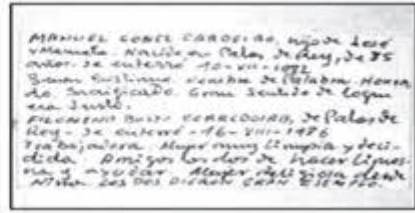 MANUEL GOMEZ CARDEIRO, hijo de José
y Manuela. Nacido en Palas de Rey, de 85
años. Se enterró 10-VII-1972
Gran Cristiano. Hombre de Palabra. Honra-
do. Sacrificado. Gran Sentido de lo que
era Justo.
FILOMENA BUSTO CORREDOIRA, de Palas de
Rey - Se enterró - 16 - VIII - 1976
Trabajadora. Mujer muy limpia y deci-
dida. Amigos los dos de hacer Limos-
na y ayudar. Mujer religiosa desde
NIÑA. LOS DOS DIERON GRAN EJEMPLO.